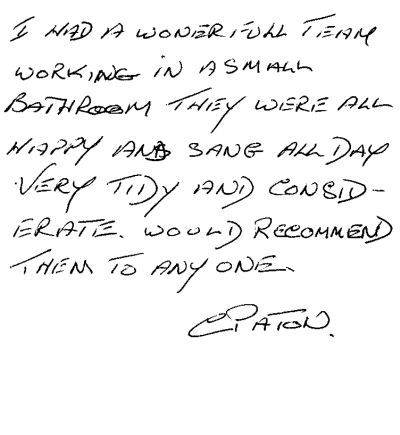 I HAD A WONERFULL TEAM
WORKING IN A SMALL
BATHROOM THEY WERE ALL
HAPPY AND SANG ALL DAY
VERY TIDY AND CONSID-
ERATE. WOULD RECOMMEND
THEM TO ANY ONE.
C PATON.